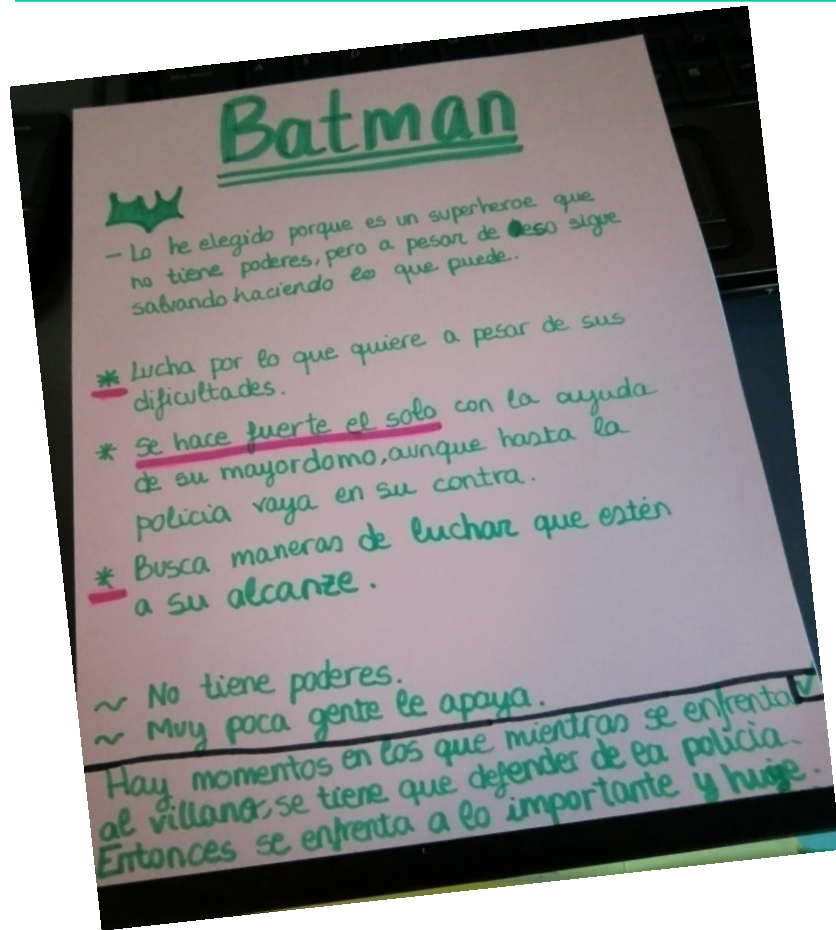 Batman
- Lo he elegido porque es un superheroe que
no tiene poderes, pero a pesar de eso sigue
salvando haciendo lo que puede.
* Lucha por lo que quiere a pesar de sus
dificultades.
* Se hace fuerte el solo con la ayuda
de su mayordomo, aunque hasta la
policia vaya en su contra.
* Busca maneras de luchar que estén
a su alcanze.
~ No tiene poderes.
~ Muy poca gente le apoya.
Hay momentos en los que mientras se enfrenta
al villano, se tiene que defender de la policia.
Entonces se enfrenta a lo importante y huye.